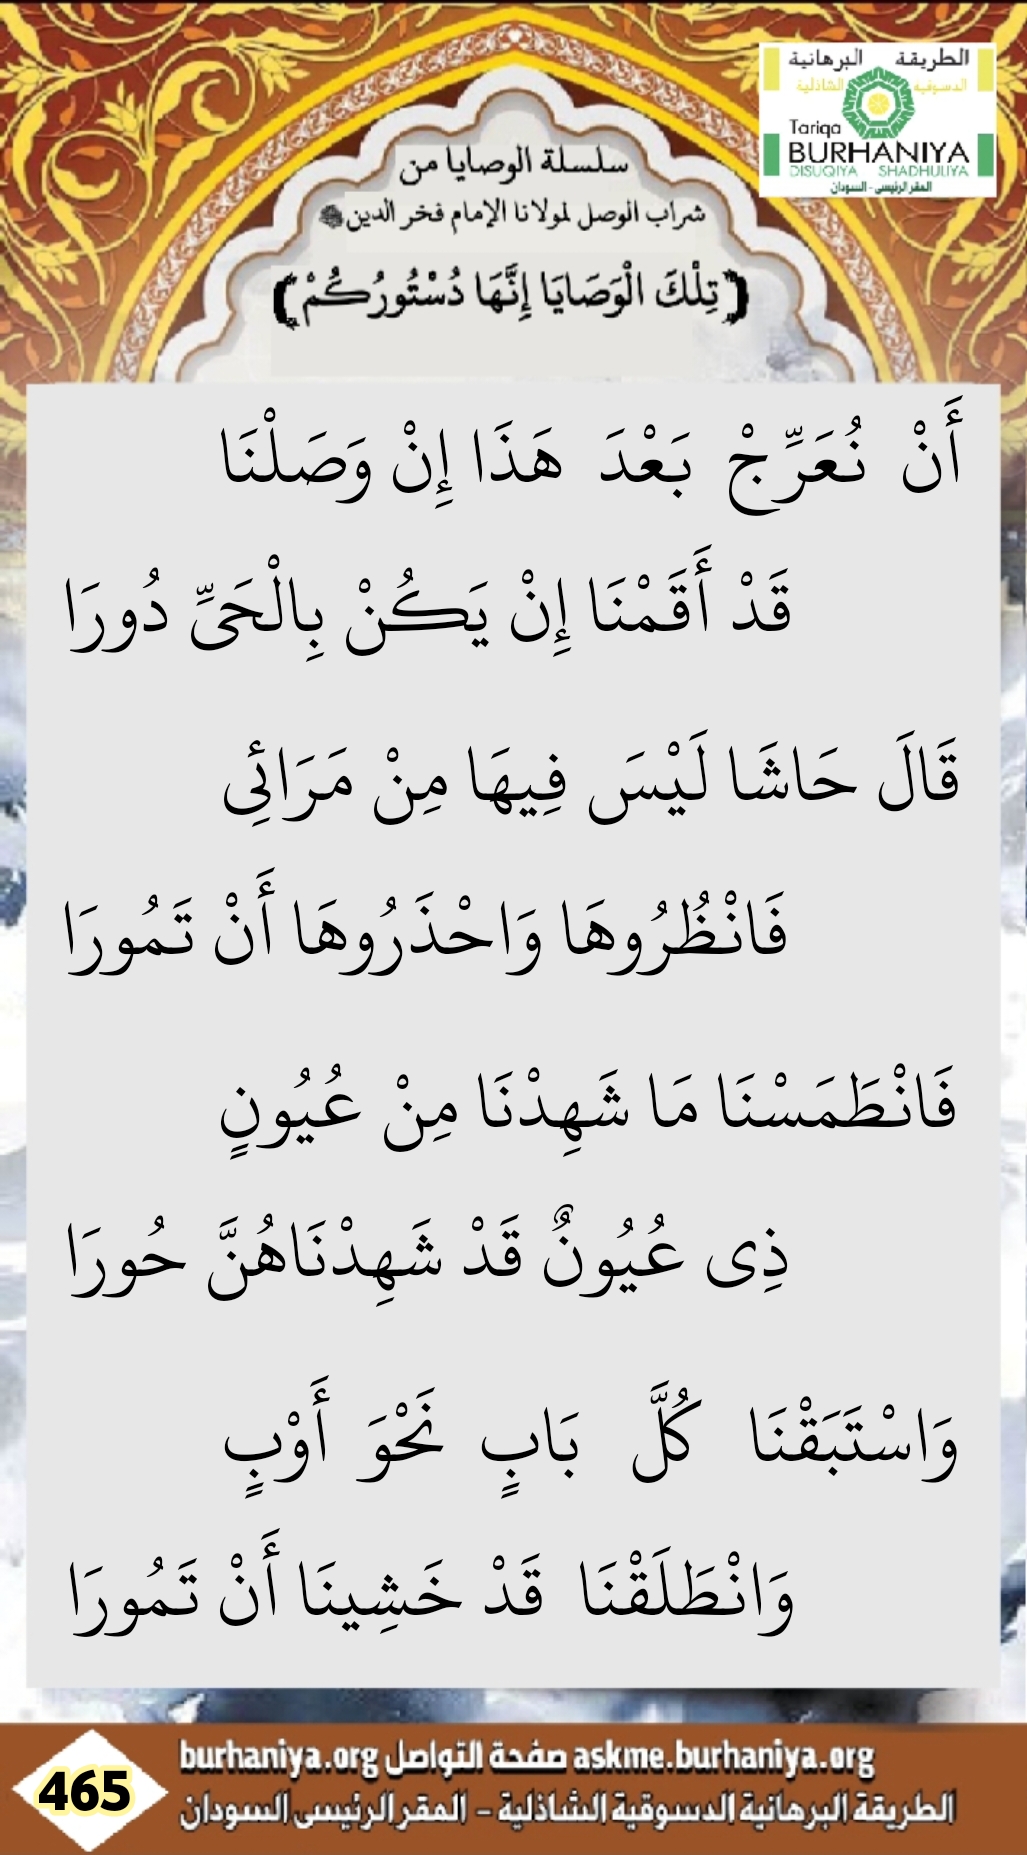 الطريقة البرهانية
الدسوقية الشاذلية
Tariqa
BURHANIYA
DISUQIYA SHADHULIYA
المقر الرئيسى - السودان
سلسلة الوصايا من
شراب الوصل لمولانا الإمام فخر الدين
﴿تِلْكَ الْوَصَايَا إِنَّهَا دُسْتُورُكُمْ﴾
أَنْ نُعَرِّجْ بَعْدَ هَذَا إِنْ وَصَلْنَا
قَدْ أَقَمْنَا إِنْ يَكُنْ بِالْحَىِّ دُورَا
قَالَ حَاشَا لَيْسَ فِيهَا مِنْ مَرَائِى
فَانْظُرُوهَا وَاحْذَرُوهَا أَنْ تَمُورَا
فَانْطَمَسْنَا مَا شَهِدْنَا مِنْ عُيُونٍ
ذِى عُيُونٌ قَدْ شَهِدْنَاهُنَّ حُورَا
وَاسْتَبَقْنَا كُلَّ بَابٍ نَحْوَ أَوْبٍ
وَانْطَلَقْنَا قَدْ خَشِينَا أَنْ تَمُورَا
burhaniya.org صفحة التواصل askme.burhaniya.org
الطريقة البرهانية الدسوقية الشاذلية - المقر الرئيسى السودان
465